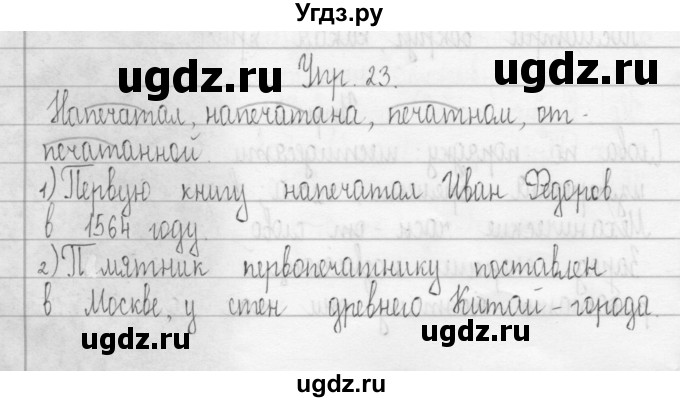 Угдз.ру
ugdz.ru ugdz.ru
Упр. 23.
Напечатал, напечатана, печатном, от-
печатанной.
ugdz.ru ugdz.ru
1) Первую книгу напечатал Иван Фёдоров
в 1564 году.
2) П мятник первопечатнику поставлен
в Москве, у стен древнего Китай-города.
ugdz.ru ugdz.ru
ugdz.ru